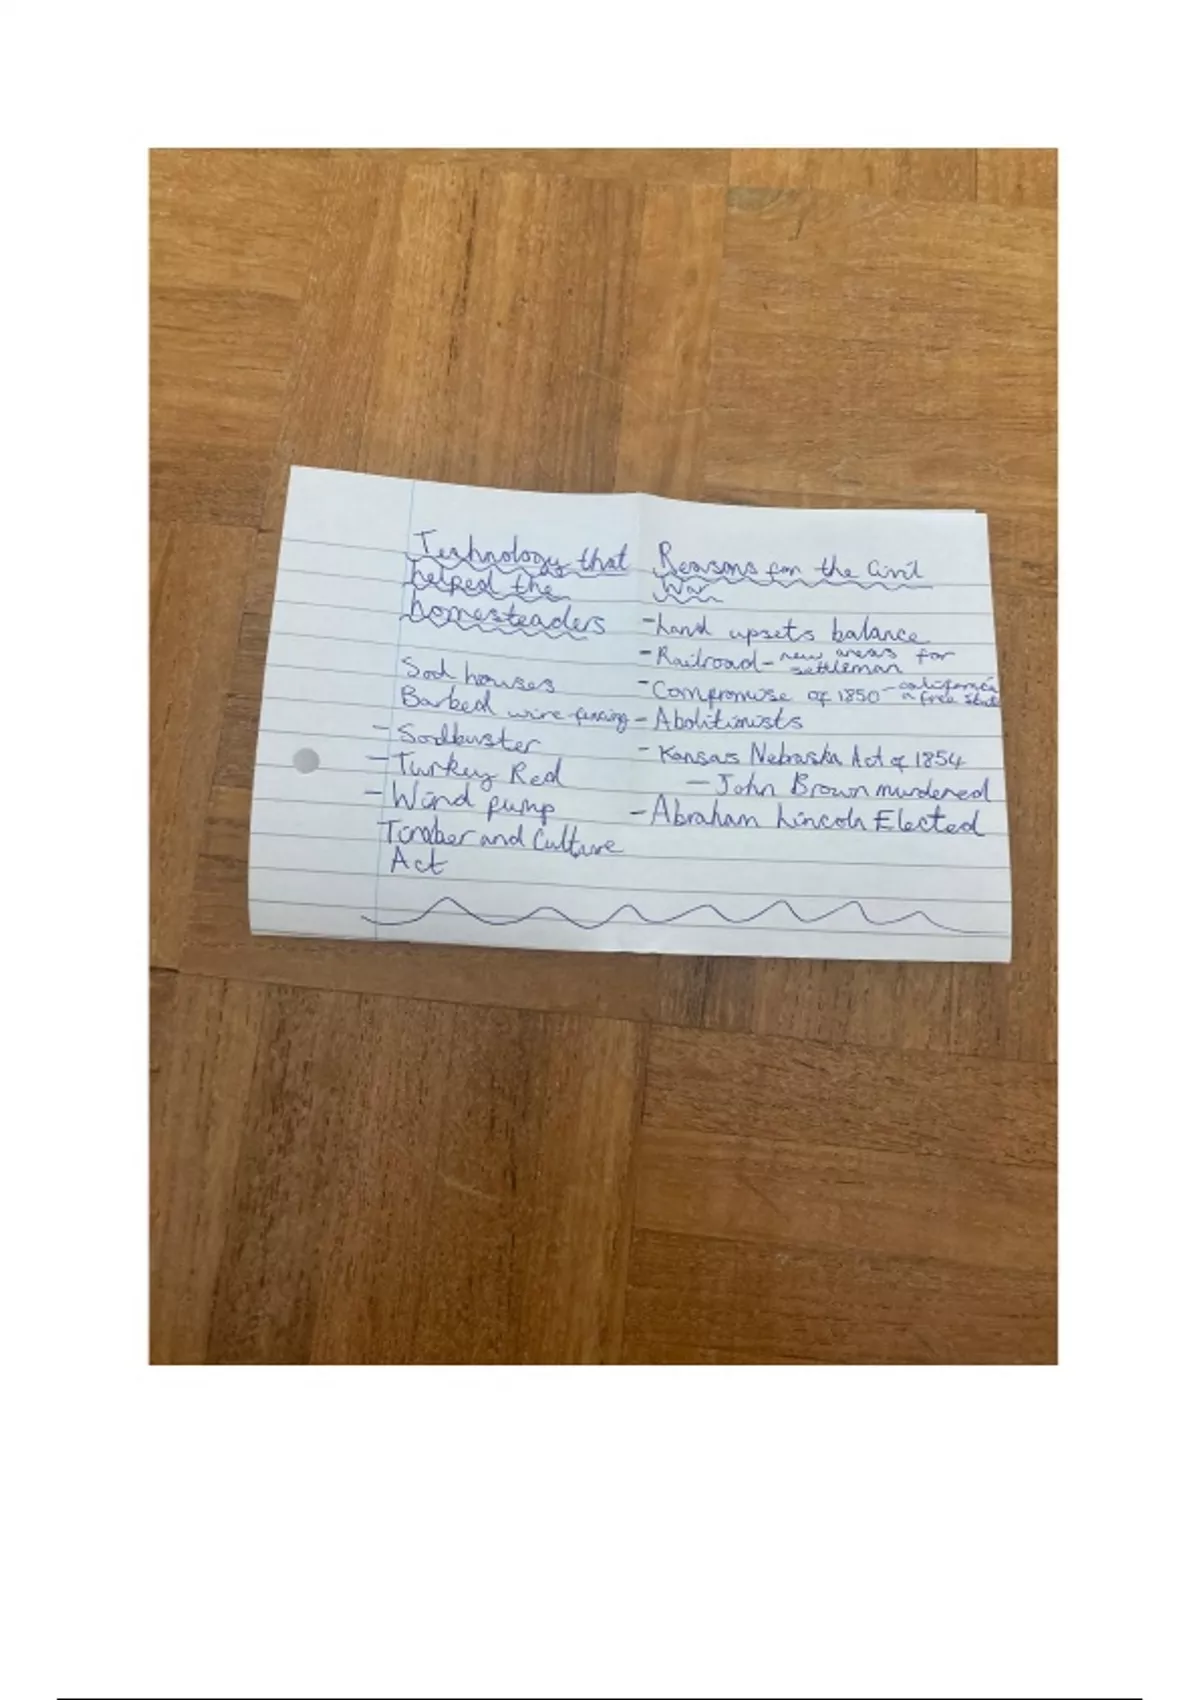 Technology that
helped the
homesteaders
Sod houses
Barbed wire fencing
- Sodbuster
- Turkey Red
- Wind pump
Timber and Culture
Act
Reasons for the Civil
War
- Land upsets balance
- Railroad - new areas for
settleman
- Compromise of 1850 - california
a free state
- Abolitionists
- Kansas Nebraska Act of 1854
- John Brown murdered
- Abraham Lincoln Elected